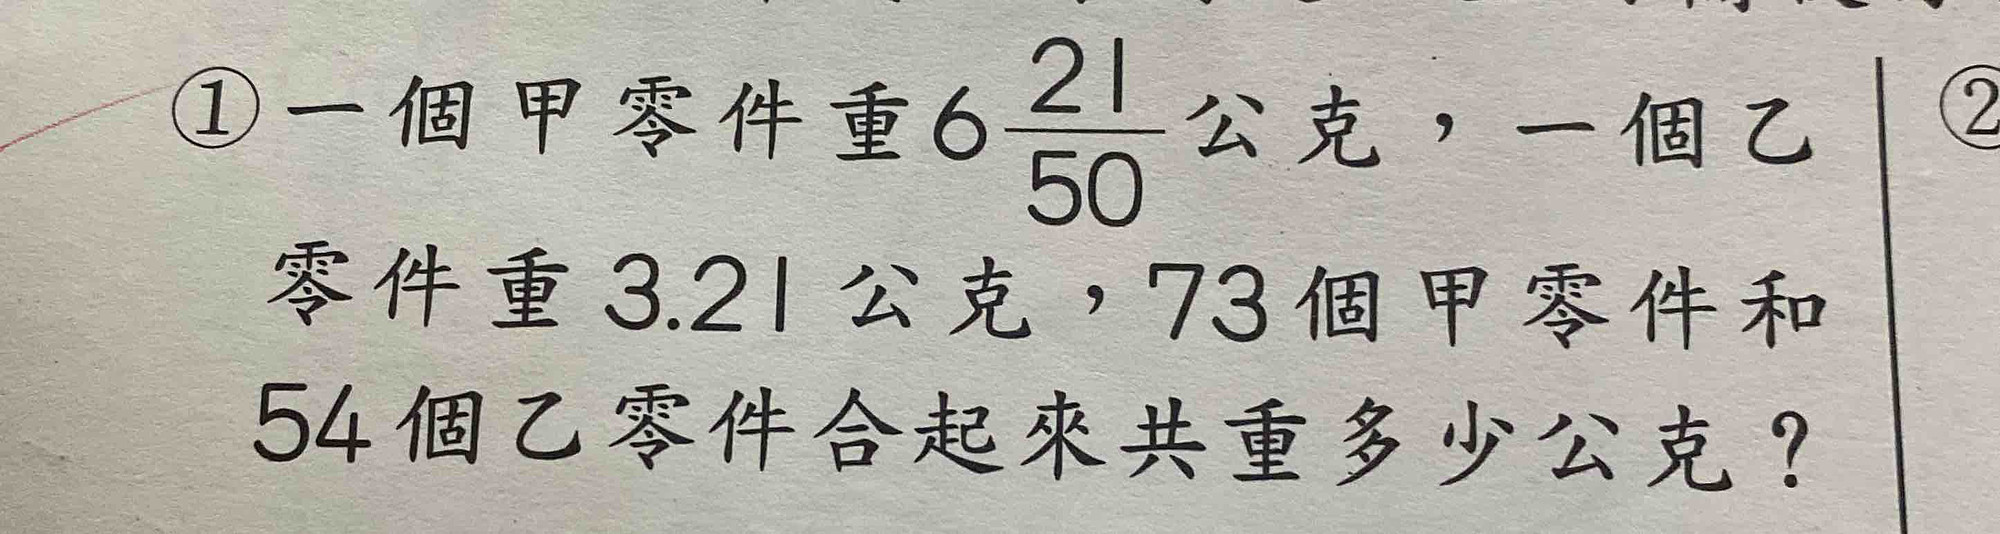 ①一個甲零件重6 21/50 公克，一個乙
零件重3.21公克，73個甲零件和
54個乙零件合起來共重多少公克？
②